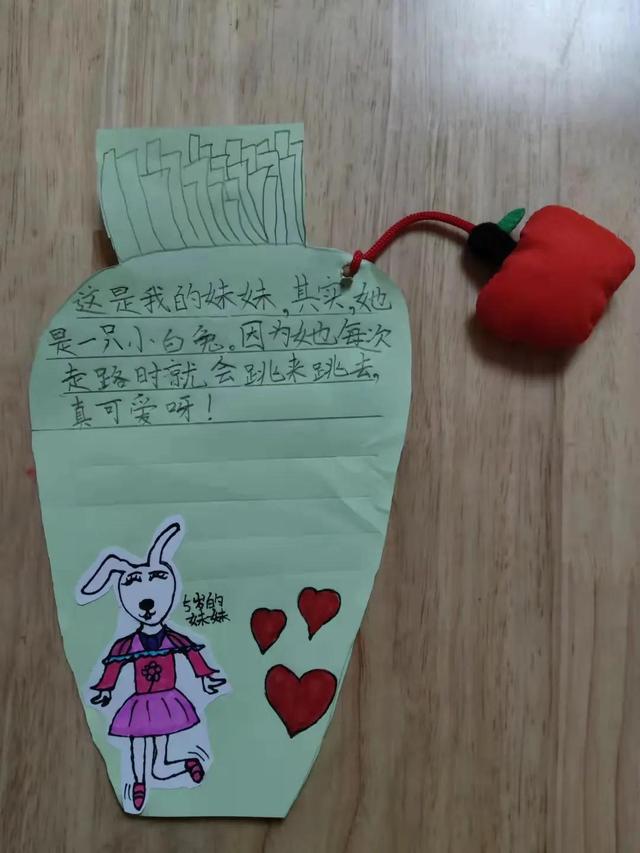 这是我的妹妹,其实,她
是一只小白兔。因为她每次
走路时就会跳来跳去,
真可爱呀!
5岁的
妹妹